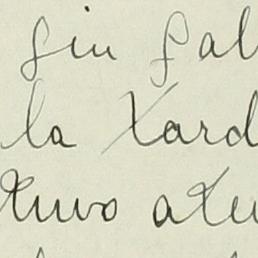 fin fal
la Tard
tuvo atu